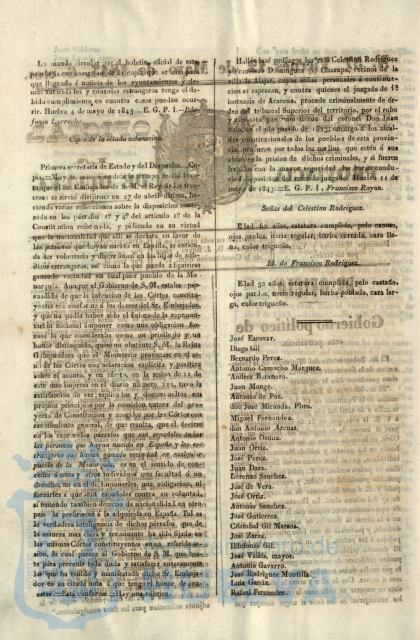 Lo mando circular por el boletin oficial de esta
provincia con insercion de la espresada nota para
que llegando á noticia de los ayuntamientos y de-
mas autoridades y consules estrangeros tenga el de-
bido cumplimiento en cuantos casos puedan ocur-
rir. Huelva 4 de mayo de 1843.—E. G. P. I.—Ilde-
fonso Larroche.
Copia de la citada
Primera secretaría de Estado y del Despacho.—Co-
pia.—Muy Sr. mio:
ta que el Sr. Embajador de S. M. el Rey de los fran-
ceses se sirvió dirigirme en 27 de abril último, ha-
ciendo varias reflecsiones sobre la disposicion conte-
nida en los párrafos 1º y 4º del artículo 1º de la
Constitucion reformada, y pidiendo en su virtud
que la nacionalidad que allí se declara en favor de
las personas que hayan nacido en España, se entien-
da ser voluntaria y discrecional en los hijos de súb-
ditos estrangeros, así como la que pueda adquirirse
ganando vecindad en cualquier pueblo de la Mo-
narquía. Aunque el Gobierno de S. M. estaba per-
suadido de que la intencion de las Córtes constitu-
yentes era conforme á los deseos del Sr. Embajador,
y que no podia haber sido el ánimo de la represen-
tacion nacional imponer como una obligacion for-
zosa lo que consideraba como un privilegio y un
honor distinguido, quiso no obstante S. M. la Reina
Gobernadora que el Ministerio provocase en el se-
no de las Córtes una aclaracion esplícita y positiva
sobre el asunto, y en efecto, en la sesion de 11, de
este mes impresa en el diario número 191, tuvo la
satisfaccion de ver esplicados y desenvueltos sus
propios principios por la comision entera del pro-
yecto de Constitucion y acogidos por las Córtes con
asentimiento general, de que resulta, que el decirse
en los espresados párrafos que son españoles todas
las personas que hayan nacido en España, y los es-
trangeros que hayan ganado vecindad en cualquier
pueblo de la Monarquía, es en el sentido de conce-
der á unos y otros individuos una facultad ó un
derecho, no en el de imponerles una obligacion, ni
forzarles á que sean españoles contra su voluntad,
si teniendo tambien derecho de nacionalidad en otro
pais la prefiriesen á la adquirida en España. Tal es
la verdadera inteligencia de dichos párrafos, que de
la manera mas clara y terminante ha sido fijada en
las mismas Córtes constituyentes en su referida se-
sion, lo cual parece al Gobierno de S. M. que bas-
ta para prevenir toda duda y satisfacer enteramente
los que ha tenido y manifestado dicho Sr. Embaja-
dor en su citada nota á que tengo el honor de con-
testar.—Está conforme.—Hay una rúbrica.
Hallándose prófugos los reos Celestino Rodriguez
y Francisco Dominguez (b) Guarapa, vecinos de la
villa de Alajar, cuyas señas personales á continua-
cion se espresan, y contra quienes el juzgado de 1ª
instancia de Aracena, procede criminalmente de ór-
den del tribunal Superior del territorio, por el robo
y asesinato que cometieron del coronel Don Juan
Solano en el año pasado de 1823; encargo á los alcal-
des constitucionales de los pueblos de esta provincia,
procuren por todos los medios que estén á sus
alcances la prision de dichos criminales, y si fueren
habidos con la mayor seguridad los harán conducir
á disposicion del referido juzgado. Huelva 11 de
mayo de 1843.—E. G. P. I., Francisco Rayon.
Señas del Celestino Rodriguez.
Edad 50 años, estatura cumplida, pelo canoso,
ojos pardos, nariz regular, barba cerrada, cara lle-
na, color trigueño.
Id. de Francisco Rodriguez.
Edad 50 años, estatura cumplida, pelo castaño,
ojos pardos, nariz regular, barba poblada, cara lar-
ga, color trigueño.
José Escovar.
Diego Gil.
Bernardo Perez.
Antonio Camacho Marquez.
Andres Bañasero.
Juan Monge.
Antonio de Paz.
don José Miranda, Pbro.
Miguel Fernandez.
don Antonio Arenas.
Antonio Osuna.
Juan Ortiz.
José Perez.
Juan Daza.
Lorenzo Sanchez.
José de Vera.
José Ortiz.
Antonio Sanchez.
José Gutierrez.
Cristobal Gil Mateos.
José Zarza.
Ildefonso Gil.
José Valdés, mayor.
Antonio Gavarro.
José Rodriguez Montilla.
Luis Garcia.
Rafael Fernandez.